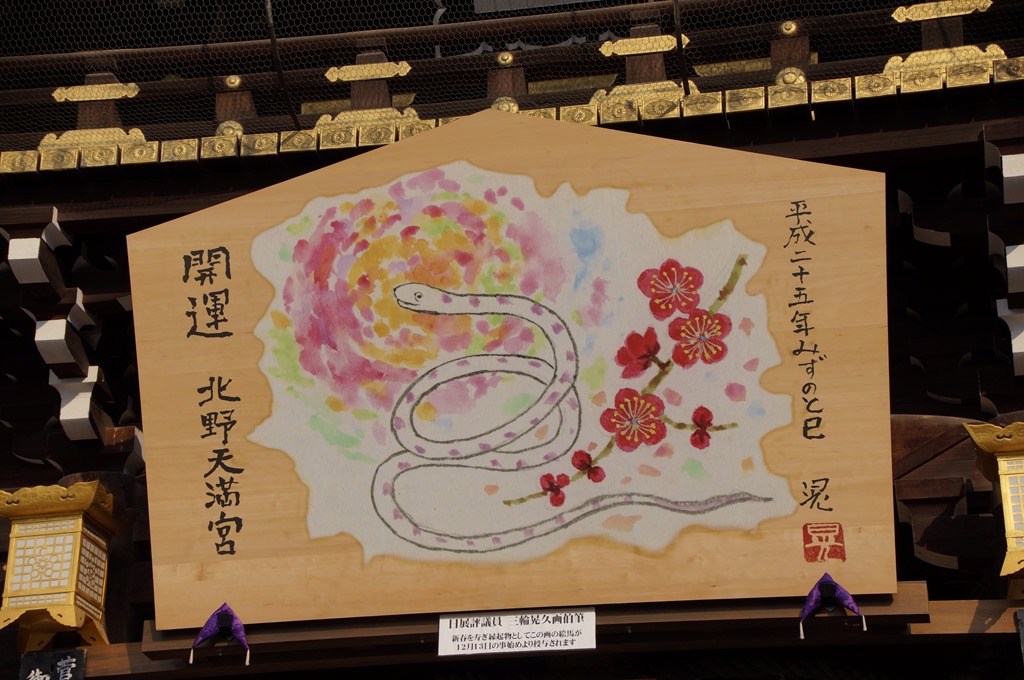 平成二十五年みずのと巳
晃
晃
開運 北野天満宮
日展評議員 三輪晃久画伯筆
新春を寿ぎ縁起物としてこの画の絵馬が
12月13日の事始めより授与されます
菅
御